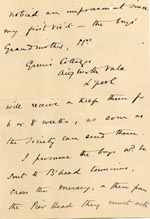 noticed an improvement since
my first visit — the boys'
Grandmother, Mrs
Green's Cottages
Aigburth Vale
L'pool
will receive & keep them for
6 or 8 weeks, as soon as
the Society can send them.
I presume the boys will be
sent to B'head
cross the Mersey, & then from
the Pier Head they must ask